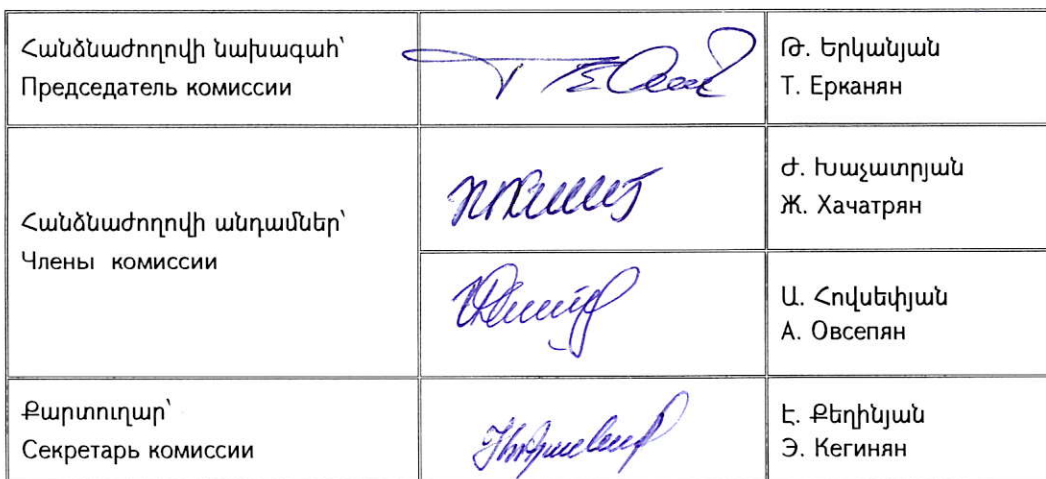 Հանձնաժողովի նախագահ՝
Председатель комиссии
Թ. Երկանյան
Т. Ерканян
Հանձնաժողովի անդամներ՝
Члены комиссии
Ժ. Խաչատրյան
Ж. Хачатрян
Ա. Հովսեփյան
А. Овсепян
Քարտուղար՝
Секретарь комиссии
Է. Քեղինյան
Э. Кегинян